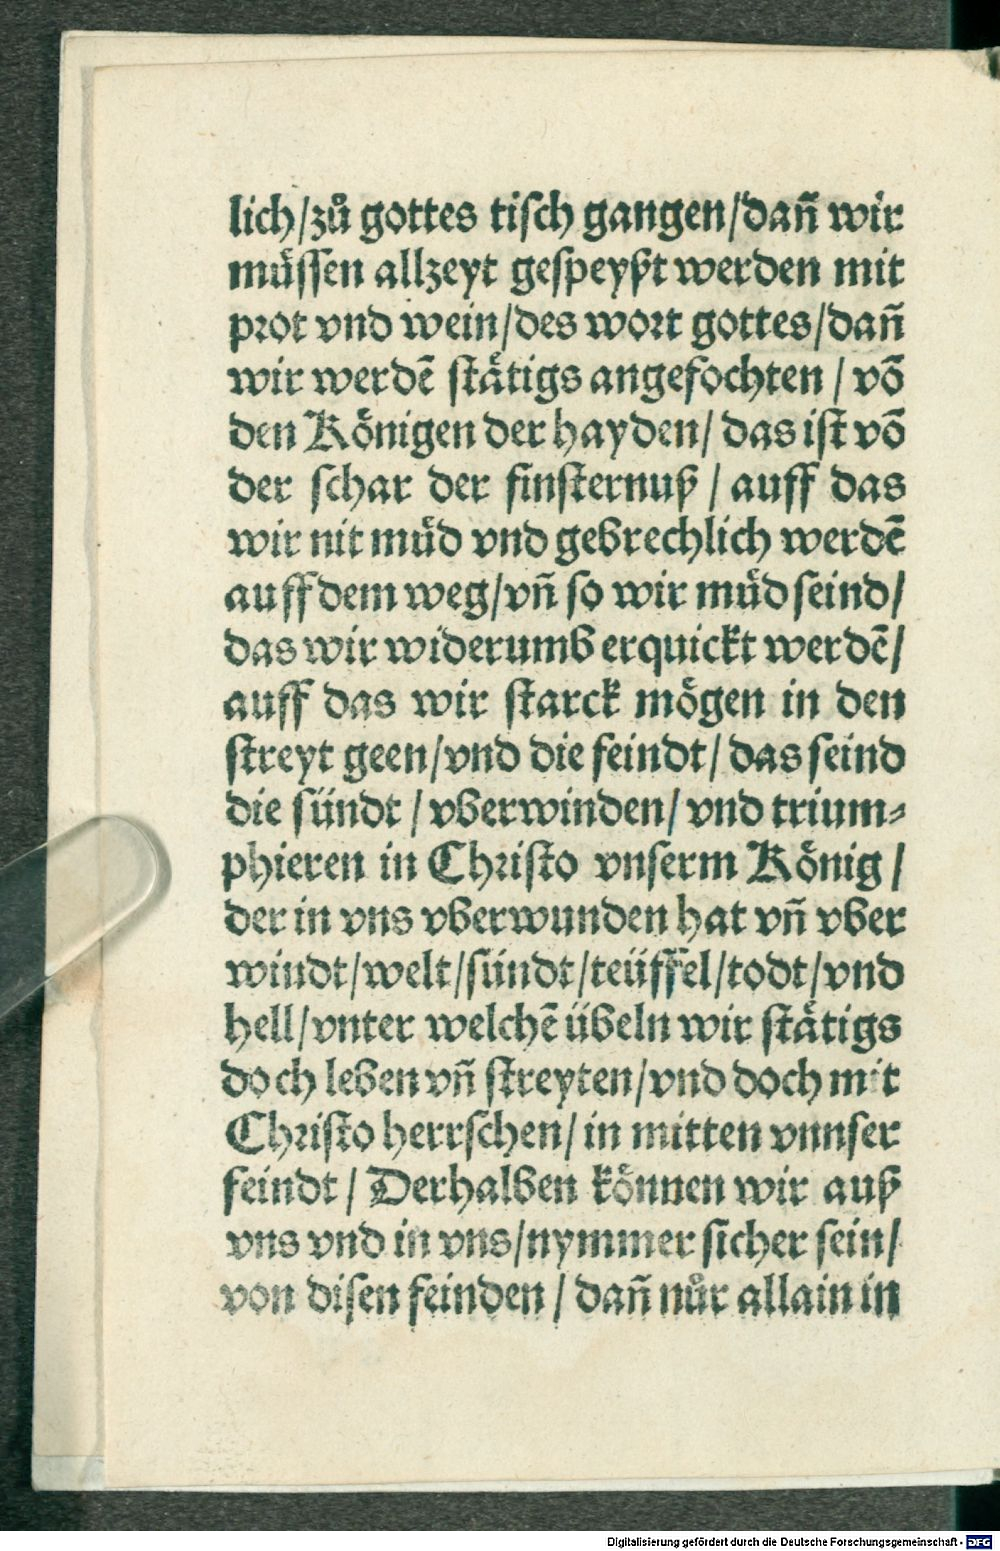 lich/zů gottes tisch gangen/dañ wir
müssen allzeyt gespeyßt werden mit
prot vnd wein/des wort gottes/dañ
wir werdē stätigs angefochten / vō
den Königen der hayden/ das ist vō
der schar der finsternuß / auff das
wir nit müd vnd gebrechlich werdē
auff dem weg/vñ so wir müd seind/
das wir widerumb erquickt werdē/
auff das wir starck mögen in den
streyt geen/vnd die feindt/ das seind
die sündt / vberwinden/ vnd trium⸗
phieren in Christo vnserm König /
der in vns vberwunden hat vñ vber
windt/welt/sündt/teüffel/todt/vnd
hell/vnter welchē übeln wir stätigs
doch leben vñ streyten/vnd doch mit
Christo herrschen/ in mitten vnnser
feindt / Derhalben können wir auß
vns vnd in vns/nymmer sicher sein/
von disen feinden / dañ nůr allain in
Digitalisierung gefördert durch die Deutsche Forschungsgemeinschaft - DFG